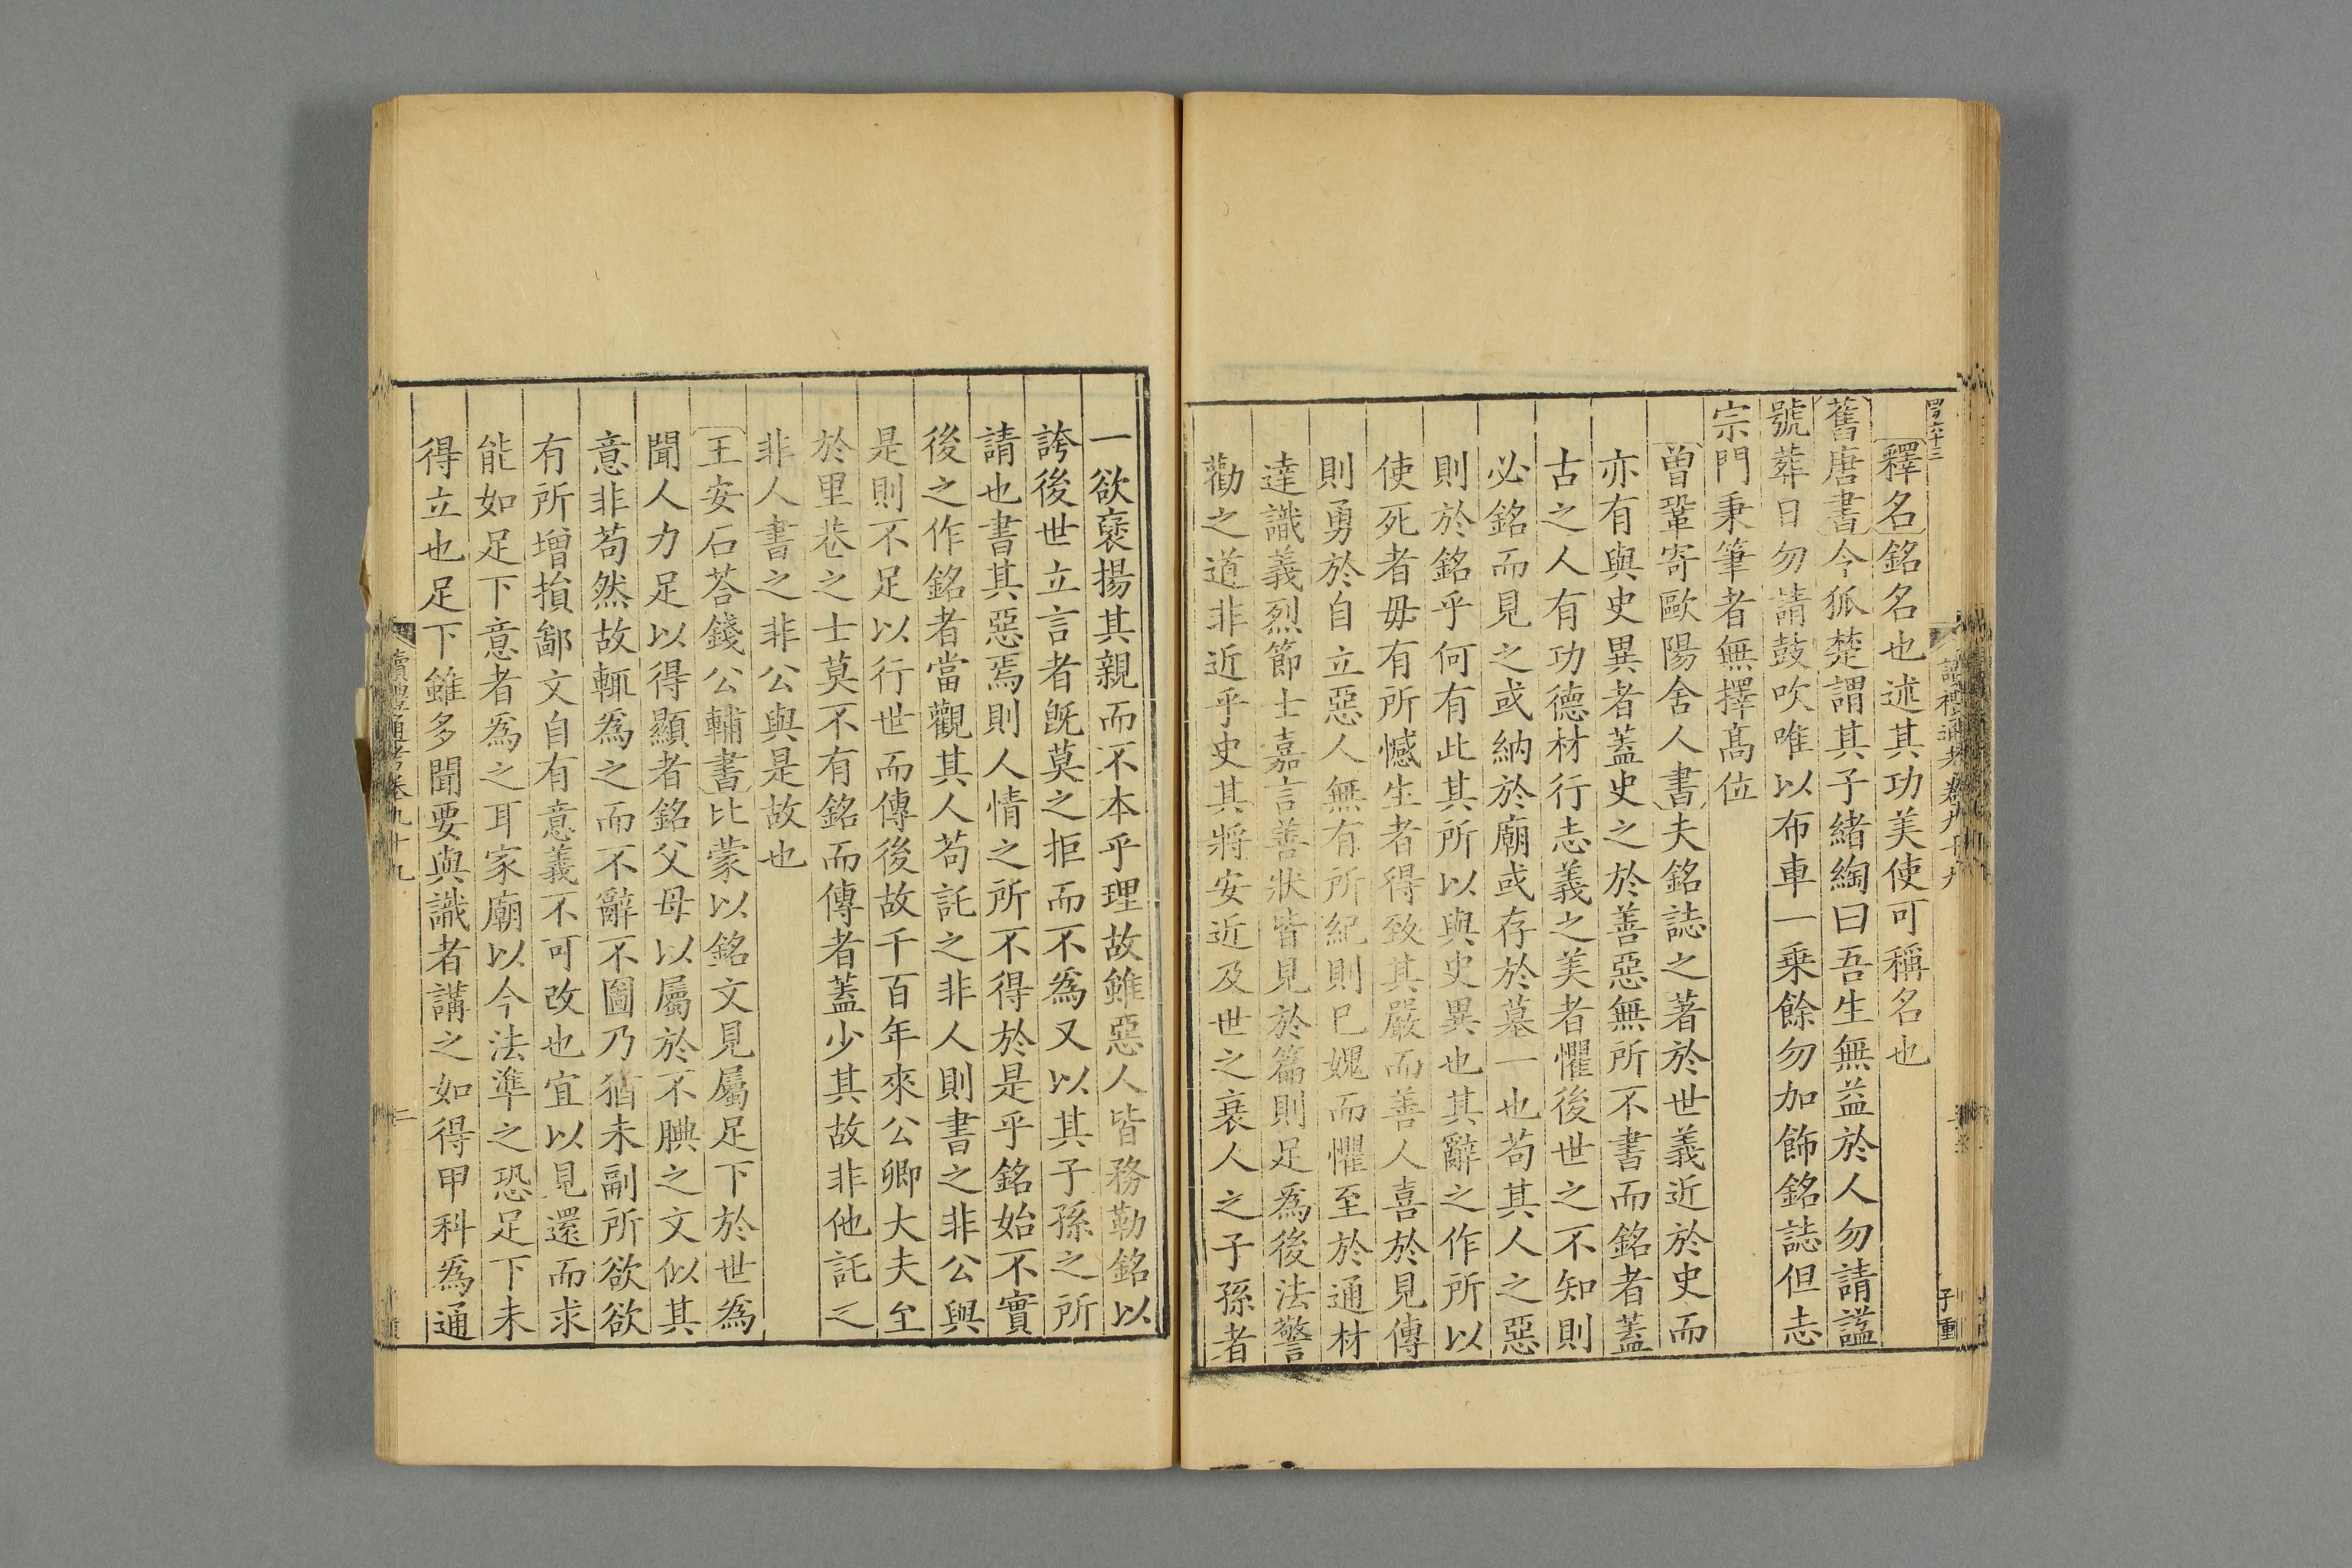 釋名銘名也述其功美使可稱名也
舊唐書令狐楚謂其子緒綯曰吾生無益於人勿請謚
號葬日勿請鼓吹唯以布車一乗餘勿加飾銘誌但志
宗門秉筆者無擇髙位
曽鞏寄歐陽舍人書夫銘誌之著於世義近於史而
亦有與史異者蓋史之於善惡無所不書而銘者蓋
古之人有功德材行志義之美者懼後世之不知則
必銘而見之或納於廟或存於墓一也苟其人之惡
則於銘乎何有此其所以與史異也其辭之作所以
使死者毋有所憾生者得致其嚴而善人喜於見傳
則勇於自立惡人無有所紀則已媿而懼至於通材
達識義烈節士嘉言善狀皆見於篇則足爲後法警
勸之道非近乎史其將安近及世之衰人之子孫者
一欲褒揚其親而不本乎理故雖惡人皆務勒銘以
誇後世立言者旣莫之拒而不爲又以其子孫之所
請也書其惡焉則人情之所不得於是乎銘始不實
後之作銘者當觀其人苟託之非人則書之非公與
是則不足以行世而傳後故千百年來公卿大夫至
於里巷之士莫不有銘而傳者蓋少其故非他託之
非人書之非公與是故也
王安石荅錢公輔書比蒙以銘文見屬足下於世爲
聞人力足以得顯者銘父母以屬於不腆之文似其
意非苟然故輒爲之而不辭不圖乃猶未副所欲欲
有所增損鄙文自有意義不可改也宜以見還而求
能如足下意者爲之耳家廟以今法準之恐足下未
得立也足下雖多聞要與識者講之如得甲科爲通
讀禮通考卷九十九
二